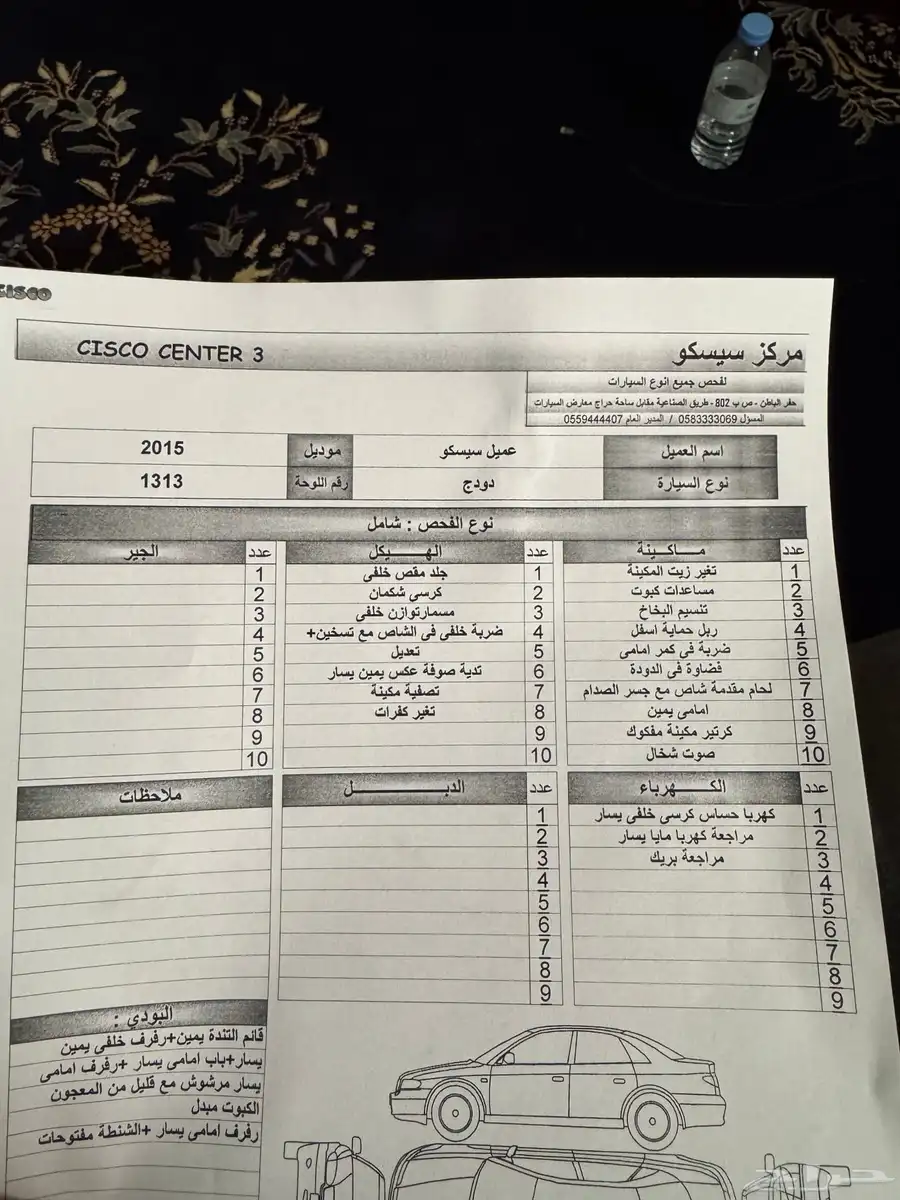 CISCO
CISCO CENTER 3
مركز سيسكو
لفحص جميع انوع السيارات
حفر الباطن - ص ب 802 - طريق الصناعية مقابل ساحة حراج معارض السيارات
المسؤل 0583333069 / المدير العام 0559444407
اسم العميل عميل سيسكو موديل 2015
نوع السيارة دودج رقم اللوحة 1313
نوع الفحص : شامل
عدد مـــاكـينة
1 تغير زيت المكينة
2 مساعدات كبوت
3 تنسيم البخاخ
4 ربل حماية اسفل
5 ضربة فى كمر امامى
6 فضاوة فى الدودة
7 لحام مقدمة شاص مع جسر الصدام
8 امامى يمين
9 كرتير مكينة مفكوك
10 صوت شخال
عدد الهـــــيكل
1 جلد مقص خلفى
2 كرسى شكمان
3 مسمارتوازن خلفى
4 ضربة خلفى فى الشاص مع تسخين+
5 تعديل
6 تدية صوفة عكس يمين يسار
7 تصفية مكينة
8 تغير كفرات
9
10
عدد الجير
1
2
3
4
5
6
7
8
9
10
عدد الكـــهرباء
1 كهربا حساس كرسى خلفى يسار
2 مراجعة كهربا مايا يسار
3 مراجعة بريك
4
5
6
7
8
9
عدد الدبـــــــــل
1
2
3
4
5
6
7
8
9
ملاحظات
البودي :
قائم التندة يمين+رفرف خلفى يمين
يسار+باب امامى يسار +رفرف امامى
يسار مرشوش مع قليل من المعجون
الكبوت مبدل
رفرف امامى يسار +الشنطة مفتوحات
حراج